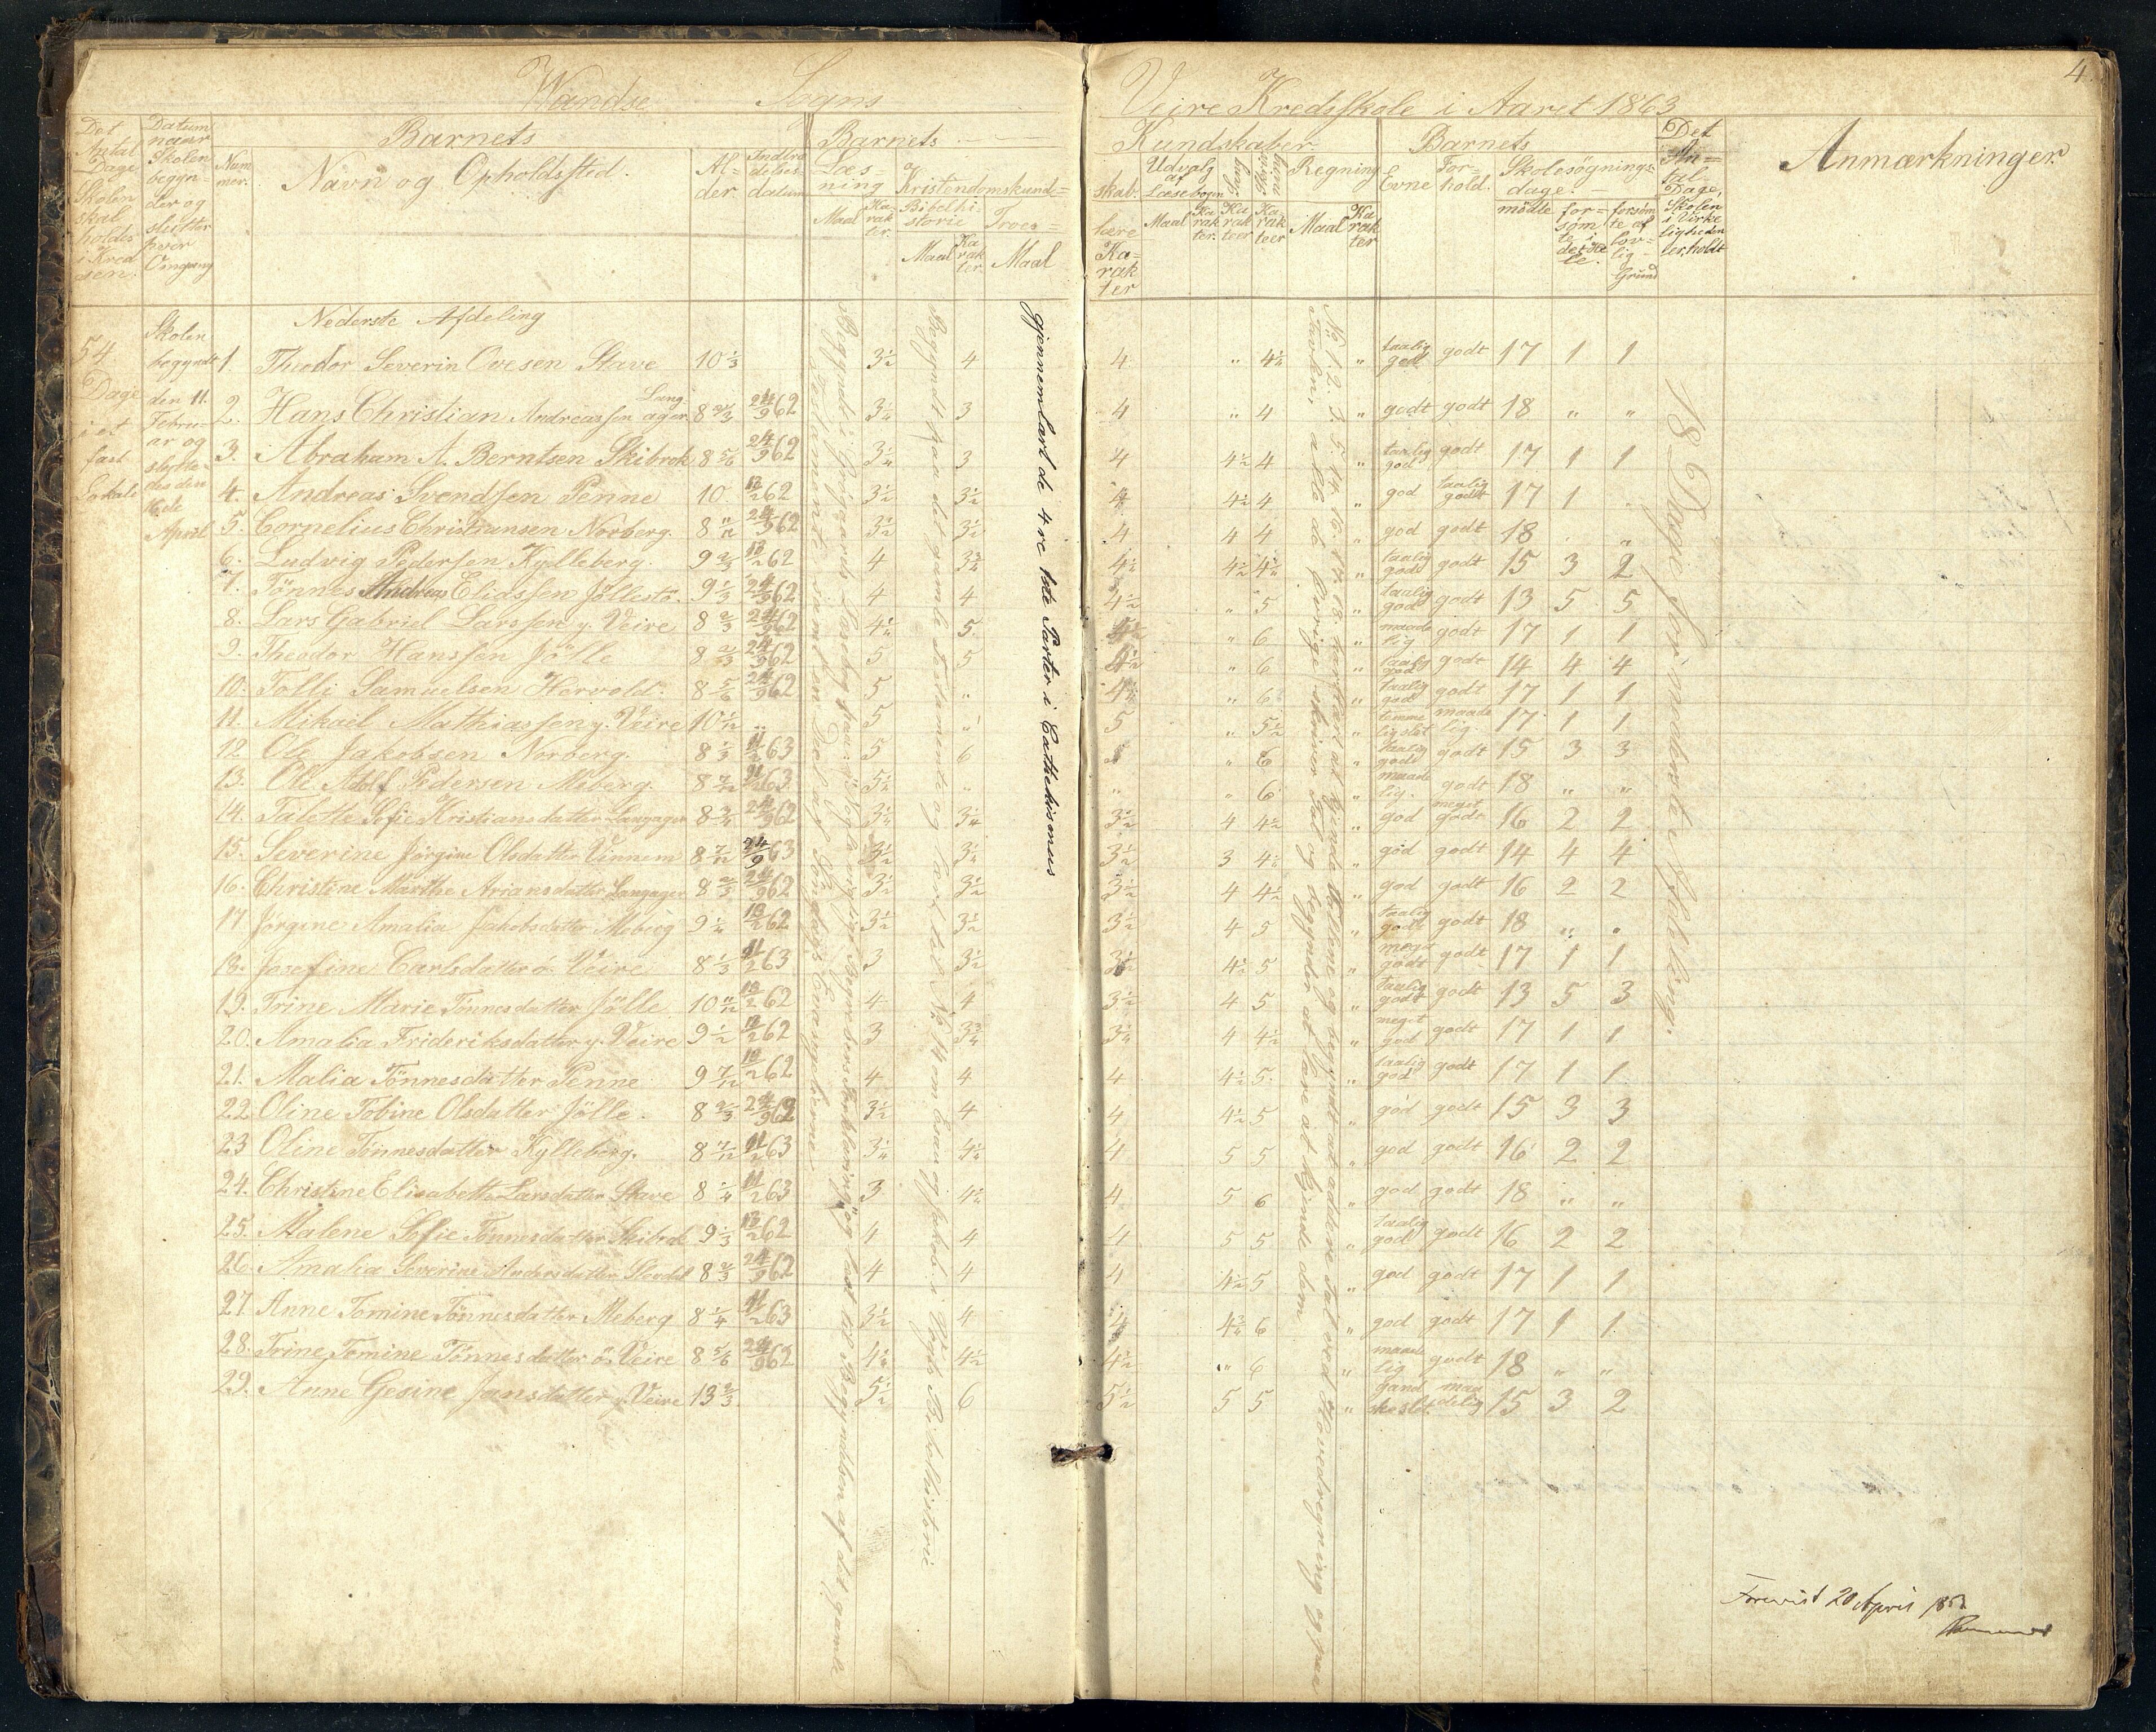 4.
Wandse Sogns Veire Kredsskole i Aaret 1863
Det Antal Dage Skolen skal holdes i Kredsen.
Datum naar Skolen begynder og slutter hver Omgang
Barnets
Nummer.
Navn og Opholdssted.
Alder.
Indtrædelsesdatum
Barnets Kundskaber
Læsning
Maal
Karakter.
Kristendomskundskab.
Bibelhistorie
Maal
Karakter.
Troeslære
Maal
Karakter
Udvalg af Læsebogen
Maal
Karakter.
Karakteer
Karakteer
Regning
Maal
Karakter
Barnets
Evne
Forhold.
Skolesøgningsdage.
mødte
forsømte i det Hele.
forsømte af lovlig Grund
Det Antal Dage, Skolen i Virkeligheden er holdt
Anmærkninger.
54 Dage i et fast Lokale
Skolen begyndt den 11. Februar og sluttedes den 16de April
Nederste Afdeling
1 Theodor Severin Ovesen Stave 10 1/3 3 1/2 4 4 " 4 1/2 " taalig god godt 17 1 1
2. Hans Christian Andreassen Langager 8 2/3 24/9 62 3 1/4 3 4 " 4 " godt godt 18 " "
3. Abraham A. Berntsen Skibrok 8 5/6 24/9 62 3 1/4 3 4 4 1/2 4 " taalig god godt 17 1 1
4. Andreas Svendsen Penne 10 13/2 62 3 1/2 3 1/2 4 4 1/2 4 " god taalig godt 17 1 "
5. Cornelius Christiansen Norberg. 8 11/12 24/9 62 3 1/2 3 1/2 4 4 4 " god godt 18 " "
6. Ludvig Pedersen Kylleberg. 9 2/3 13/2 62 4 3 3/4 4 1/2 4 1/2 4 1/2 " taalig god godt 15 3 2
7. Tönnes Andreas Eliassen Jöllestö. 9 1/3 24/9 62 4 4 4 1/2 " 5 " taalig god godt 13 5 5
8. Lars Gabriel Larssen y. Veire 8 2/3 24/9 62 4 1/2 5 " 6 " maadelig godt 17 1 1
9. Theodor Hanssen Jölle 8 2/3 24/9 62 5 5 4 1/2 " 6 " taalig god godt 14 4 4
10. Tolli Samuelsen Hervold. 8 5/6 24/9 62 5 " 4 1/2 " 6 " taalig god godt 17 1 1
11. Mikael Mathiassen y. Veire 10 1/12 " 5 " 5 " 5 1/2 " temmelig slet maadelig 17 1 1
12. Ole Jakobsen Norberg. 8 1/3 11/2 63 5 6 5 " 6 " taalig god godt 15 3 3
13. Ole Adolf Pedersen Meberg. 8 7/12 11/2 63 5 1/2 " " " 6 " maadelig. godt 18 " "
14. Talette Sofie Kristiansdatter Langager 8 3/4 24/9 62 3 1/4 3 1/4 3 1/2 4 4 1/2 " god meget godt 16 2 2
15. Severine Jörgine Olsdatter Vinnem 8 7/12 24/9 63 3 1/2 3 1/4 3 1/2 3 4 1/2 " god godt 14 4 4
16. Christine Marthe Ariansdatter Langager 8 2/3 24/9 62 3 1/2 3 1/2 3 1/2 4 4 1/2 " god godt 16 2 2
17 Jörgine Amalia Jakobsdatter Meberg 9 1/4 13/2 62 3 1/2 3 1/2 3 1/2 4 5 " taalig god godt 18 " "
18. Josefine Carlsdatter ö. Veire 8 1/3 11/2 63 3 3 1/2 3 1/2 4 1/2 5 " meget godt godt 17 1 1
19. Trine Marie Tönnesdatter Jölle 10 11/12 13/2 62 4 4 3 1/2 4 5 " taalig godt godt 13 5 3
20. Amalia Frideriksdatter y. Veire 9 1/2 13/2 62 3 3 3/4 3 1/4 4 4 1/2 " meget god godt 17 1 1
21. Malia Tönnesdatter Penne 9 7/12 13/2 62 4 4 4 4 1/2 5 " taalig god godt 17 1 1
22 Oline Tobine Olsdatter Jölle. 8 2/3 24/9 62 3 1/2 4 4 4 1/2 5 " god godt 15 3 3
23 Oline Tönnesdatter Kylleberg. 8 7/12 11/2 63 3 1/4 4 1/2 4 5 5 " god godt 16 2 2
24. Christine Elisabeth Larsdatter Stave 8 1/4 11/2 63 3 4 1/2 4 5 6 " god godt 18 " "
25. Malene Sofie Tönnesdatter Skibrok 9 1/3 13/2 62 4 4 4 5 5 " taalig god godt 16 2 2
26 Amalia Severine Andersdatter 8 2/3 24/9 62 4 4 4 4 1/2 5 " god godt 17 1 1
27 Anne Tomine Tönnesdatter Meberg 8 1/4 11/2 63 3 1/2 4 4 4 3/4 6 " god godt 17 1 1
28. Trine Tomine Tönnesdatter ö. Veire 8 5/6 24/9 62 4 1/2 4 1/2 " 6 " maadelig godt 18 " "
29. Anne Gesine Jansdatter y. Veire 13 2/3 5 1/2 6 5 1/2 5 5 " ganske slet. maadelig 15 3 2
Begyndt i Læsebog fra og læst til Begyndelsen af det gamle
Testamente samt en Deel af Söndags Evangelierne
Begyndt paa det gamle Testamente og lært til No 14 om Esau og Jakob i Vogts Bibelhistorie
gjennemlært de 4re 1ste Parter i Cathekismus
No 1. 2. 3. 5. 14. 16. 17. 18. har lært at kjende tallene og begyndt at addere Tal ved Hovedregning og paa
Tavlen, alle de øvrige skriver Tal og begynder at lære at kjende dem
18 Dage for nederste Afdeling.
Forevist 20 April